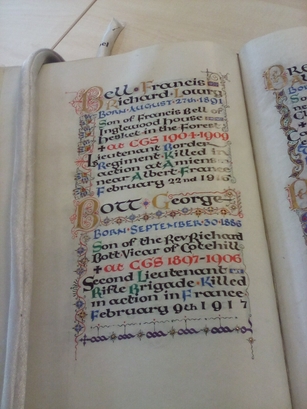 Bell · Francis
Richard · Lowry
BORN · AUGUST · 27th · 1891
Son of Francis Bell of
Inglewood House
Hesket in the Forest
+ at CGS 1904-1909
Lieutenant Border
Regiment · Killed in
action at Amiens
near Albert · France
February 22nd 1916
Bott · George
BORN · SEPTEMBER · 30 · 1886
Son of the Rev Richard
Bott · Vicar of Cotehill
+ at CGS 1897-1906
Second Lieutenant
Rifle Brigade · Killed
in action in France
February 9th 1917